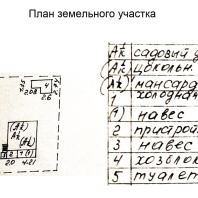 План земельного участка
Аk садовый д
Аk цокольн
Аk мансард
1 холодная
(1) навес
2 пристрой
3 навес
4 хозблок
5 туалет
4
2.08 2.6
(Аk)
Аk
(Аk)
2.0 4.21